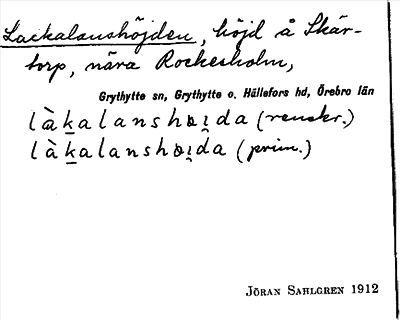 Lackalanshöjden, höjd å Skär-
torp, nära Rockesholm,
Grythytte sn, Grythytte o. Hällefors hd, Örebro län
làk̲alanshɷi̯da (renskr.)
làk̲alanshɷi̯da (prim.)
JÖRAN SAHLGREN 1912